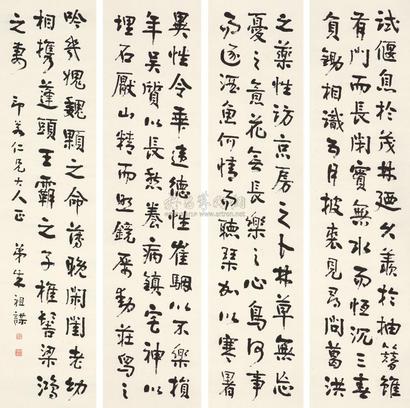 試偃息於茂林廼久羨於抽簪雖
有門而長閉實無水而恒沉三春
負鋤相識五月披裘見尋問葛洪
之藥性訪京房之卜林草無忘
憂之意花無長樂之心鳥何事
而逐酒魚何情而聽琴加以寒暑
異性令乖違德性崔駰以不樂損
年吳質以長愁養病鎮宅神以
埋石厭山精而照鏡屢動莊舄之
吟幾愧魏顆之命薄晚閑閨老幼
相攜蓬頭王霸之子椎髻梁鴻
之妻
仁兄大人正 弟朱祖謀